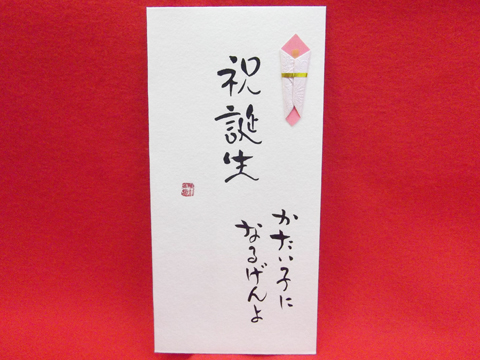 祝誕生
かたい子に
なるげんよ